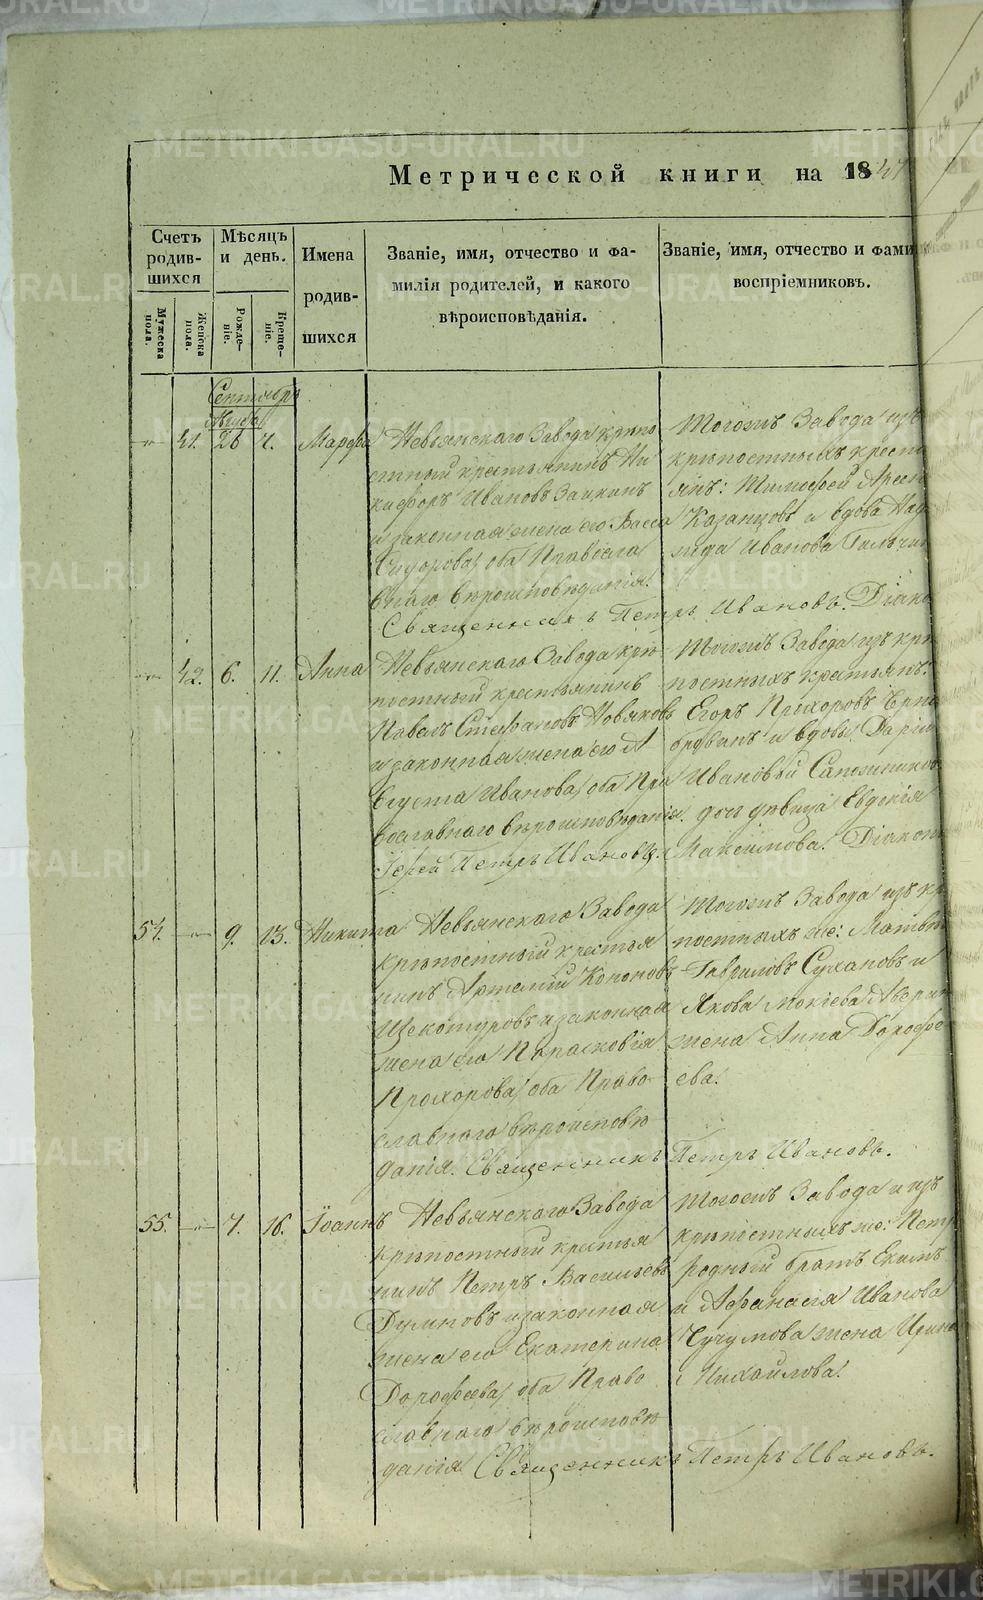 METRIKI.GASO-URAL.RU
Метрической книги на 1847
Счетъ родив-шихся
Мужеска пола.
Женска пола.
Мѣсяцъ и день.
Рожде-ніе.
Креще-ніе.
Имена родив-шихся
Званіе, имя, отчество и фа-
милія родителей, и какого
вѣроисповѣданія.
Званіе, имя, отчество и фами
воспріемниковъ.
Сентябрь
Августа
41. 26 4. Марѳа
Невьянскаго Завода крѣпо
стный крестьянинъ Ни
кифоръ Ивановъ Заикинъ
и законная жена его Васса
Сидорова, оба Правосла
внаго вѣроисповѣданія.
Тогожъ Завода изъ
крѣпостныхъ крест
янъ: Тимофей Арсен
Казанцовъ и вдова Над
ежда Иванова
Священникъ Петръ Ивановъ. Діако
42. 6. 11. Анна
Невьянскаго Завода крѣ
постный крестьянинъ
Павелъ Стефановъ Новяковъ
и законная жена его А
вгуста Иванова, оба Пра
вославнаго вѣроисповѣданія.
Тогожъ Завода изъ крѣ
постныхъ крестьянъ:
Егоръ Прохоровъ
и вдовы Даріи
Ивановой Сапожников
дочь дѣвица Евдокія
Іерей Петръ Ивановъ. Максимова. Діаконъ
54. 9. 13. Никита
Невьянскаго Завода
крѣпостный крестья
нинъ Артемій Кононовъ
Щекотуровъ и законная
жена его Парасковія
Прохорова, оба Право
славнаго вѣроисповѣ
данія. Священникъ Петръ Ивановъ.
Тогожъ Завода изъ кр
постныхъ же: Матвѣй
Гавриловъ Сухановъ и
Якова Мокіева Аверин
жена Анна Дорофе
ева.
55. 7. 16. Іоаннъ
Невьянскаго Завода
крѣпостный крестья
нинъ Петръ Васильевъ
Думновъ и законная
жена его Екатерина
Дорофеева, оба Право
славнаго вѣроисповѣ
данія. Священникъ Петръ Ивановъ.
Тогожъ Завода и изъ
крѣпостныхъ же: Петр
родный братъ Екимъ
и Афанасія Иванова
Чучумова жена Ирина
Михайлова.